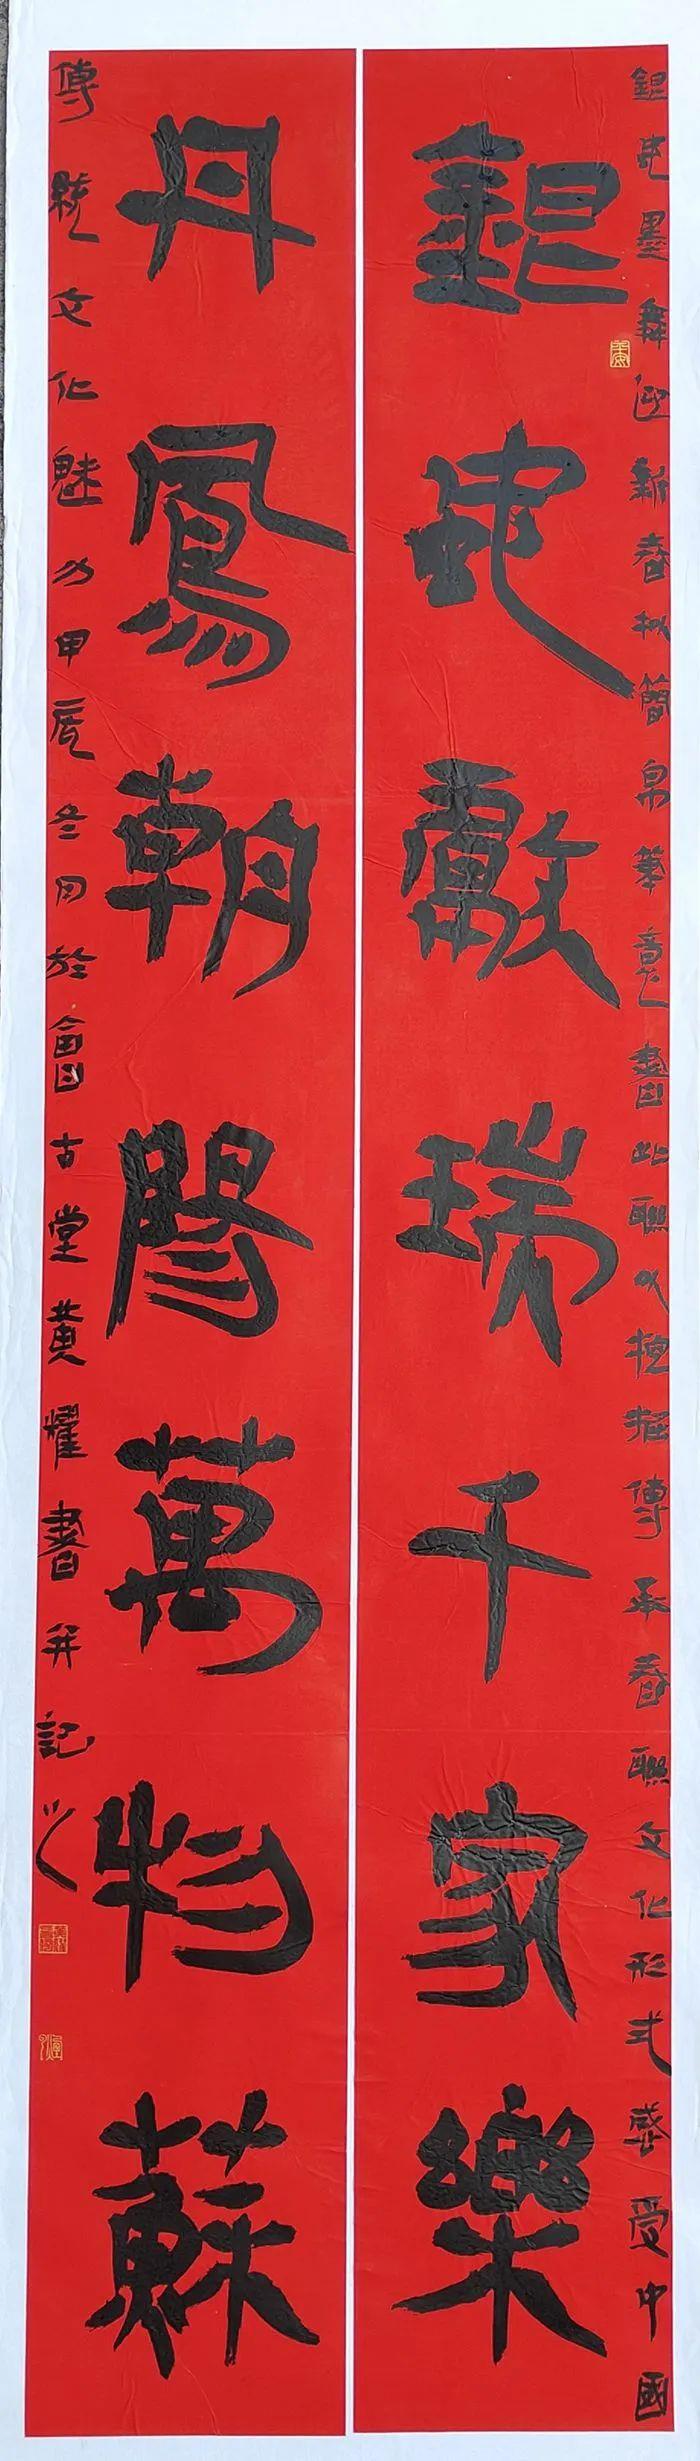 銀虵墨舞迎新春擬簡帛筆意書此聯以挖掘傳承春聯文化形式感受中國
銀虵獻瑞千家樂
平安
丹鳳朝陽萬物蘇
傳統文化魅力甲辰冬月於畣古堂黃耀書并記之